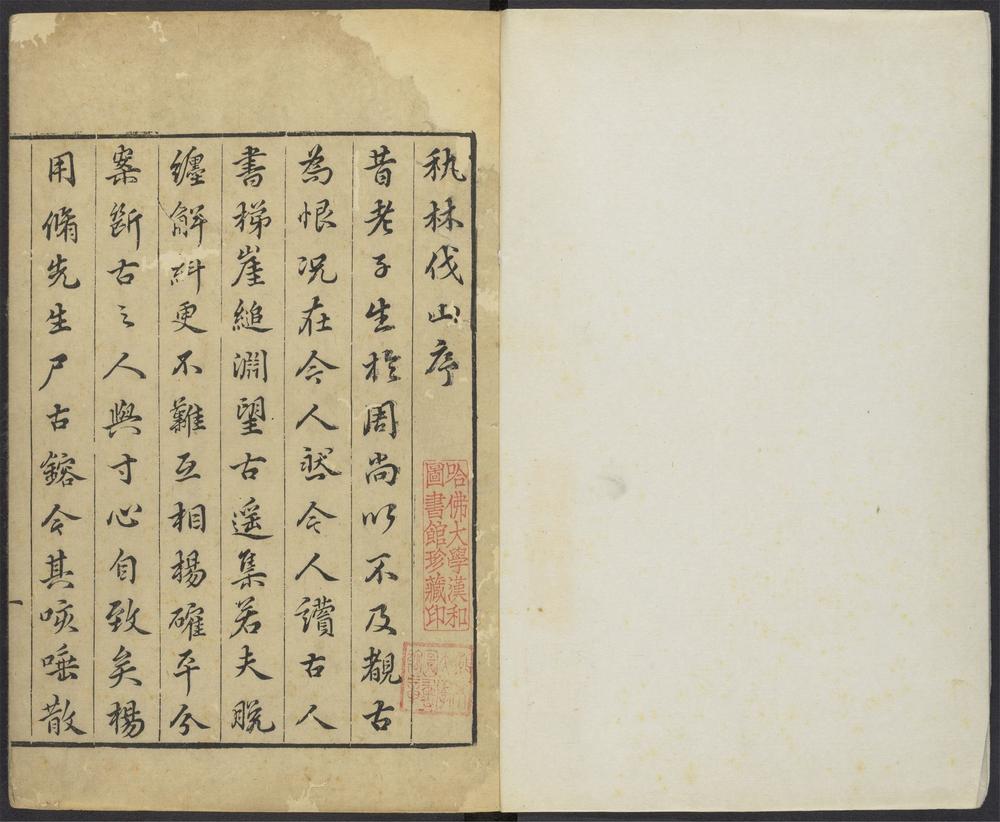 秇林伐山序
昔老子生於周尚以不及覩古
為恨况在今人㢤今人讀古人
書梯崖縋淵望古遥集若夫脫
纏觧糾更不難互相楊確平今
案斷古之人與寸心自致矣楊
用脩先生尸古鎔今其咳唾散
哈佛大學漢和
圖書館珍藏印